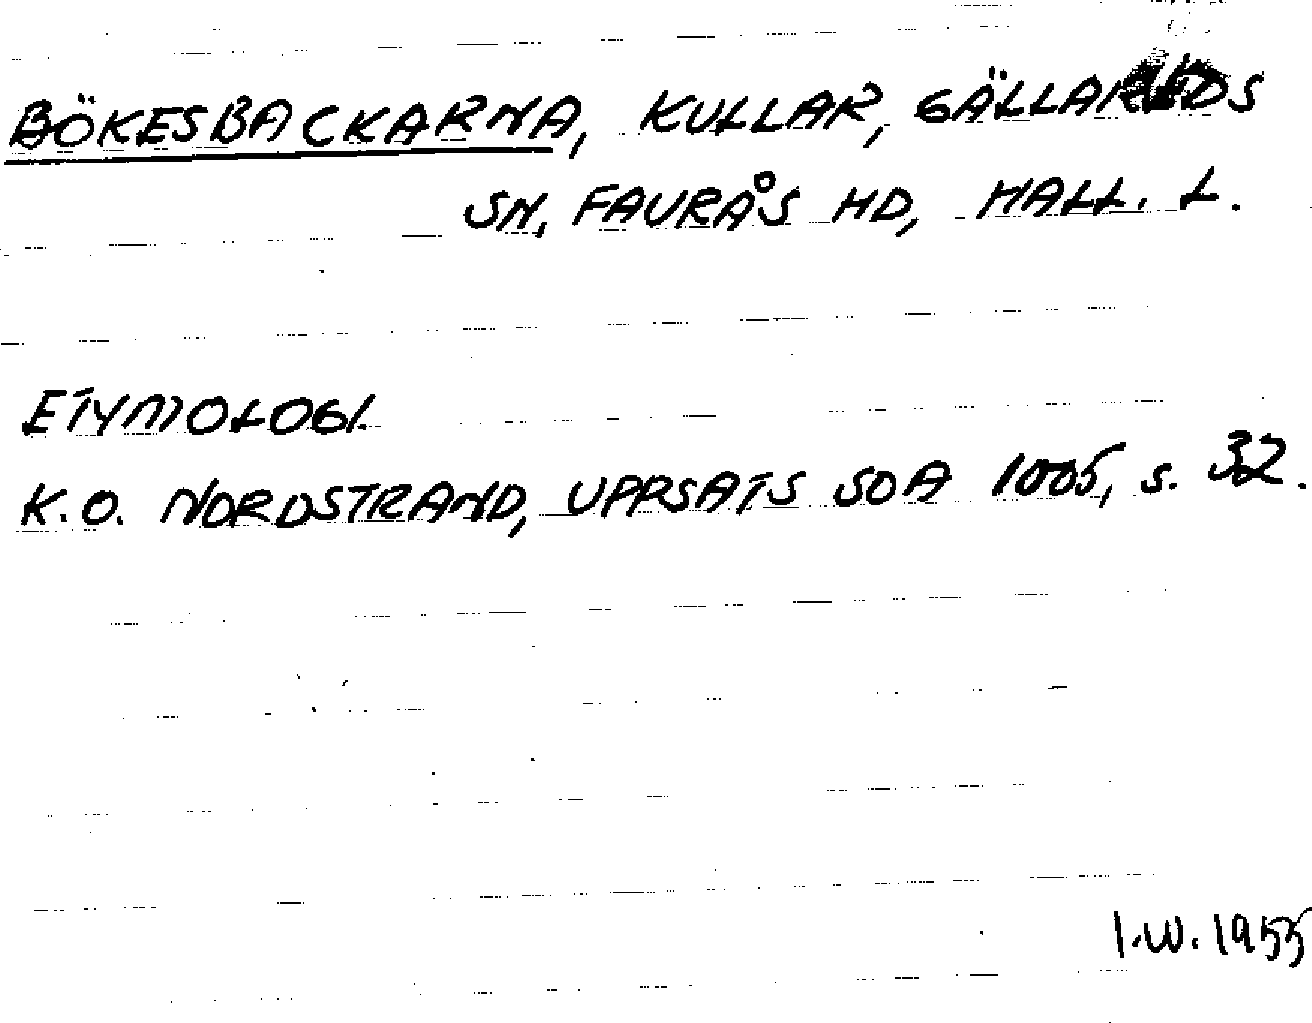 BÖKESBACKARNA, KULLAR, GÄLLAREDS
SN, FAURÅS HD, HALL. L.
ETYMOLOGI.
K.O. NORDSTRAND, UPPSATS SOA 1005, S. 32.
I.W. 1955